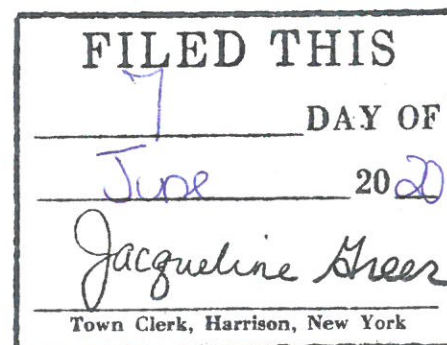 FILED THIS
7 DAY OF
June 2020
Jacqueline Greer
Town Clerk, Harrison, New York